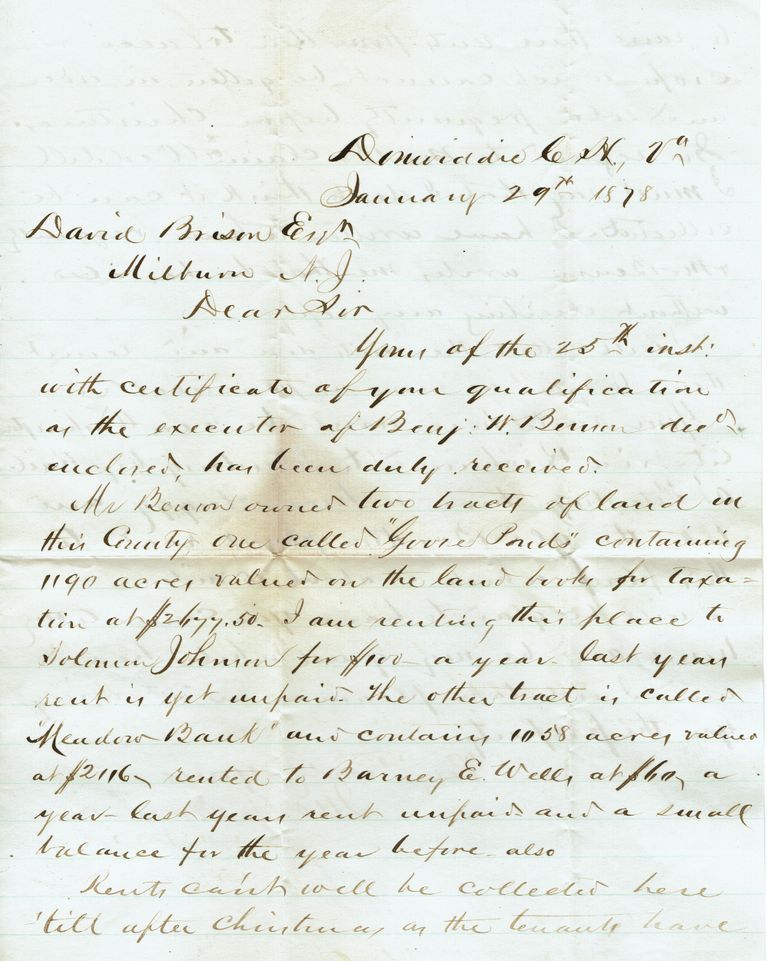 Dinwiddie C. H., Va
January 29th 1878
David Brison Esqr
Milburn N. J.
Dear Sir
Yours of the 25th inst:
with certificate of your qualification
as the executor of Benj. W. Benson decd
enclosed, has been duly received.
Mr Benson owned two tracts of land in
this County, one called "Goose Ponds" containing
1190 acres valued on the land books for taxa=
tion at $2677.50. I am renting this place to
Solomon Johnson for $100 — a year — last years
rent is yet unpaid. The other tract is called
"Meadow Bank" and contains 1058 acres valued
at $2116, rented to Barney E. Wells at $60, a
year — last years rent unpaid and a small
balance for the year before — also
Rents can't well be collected here
'till after Christmas as the tenants have